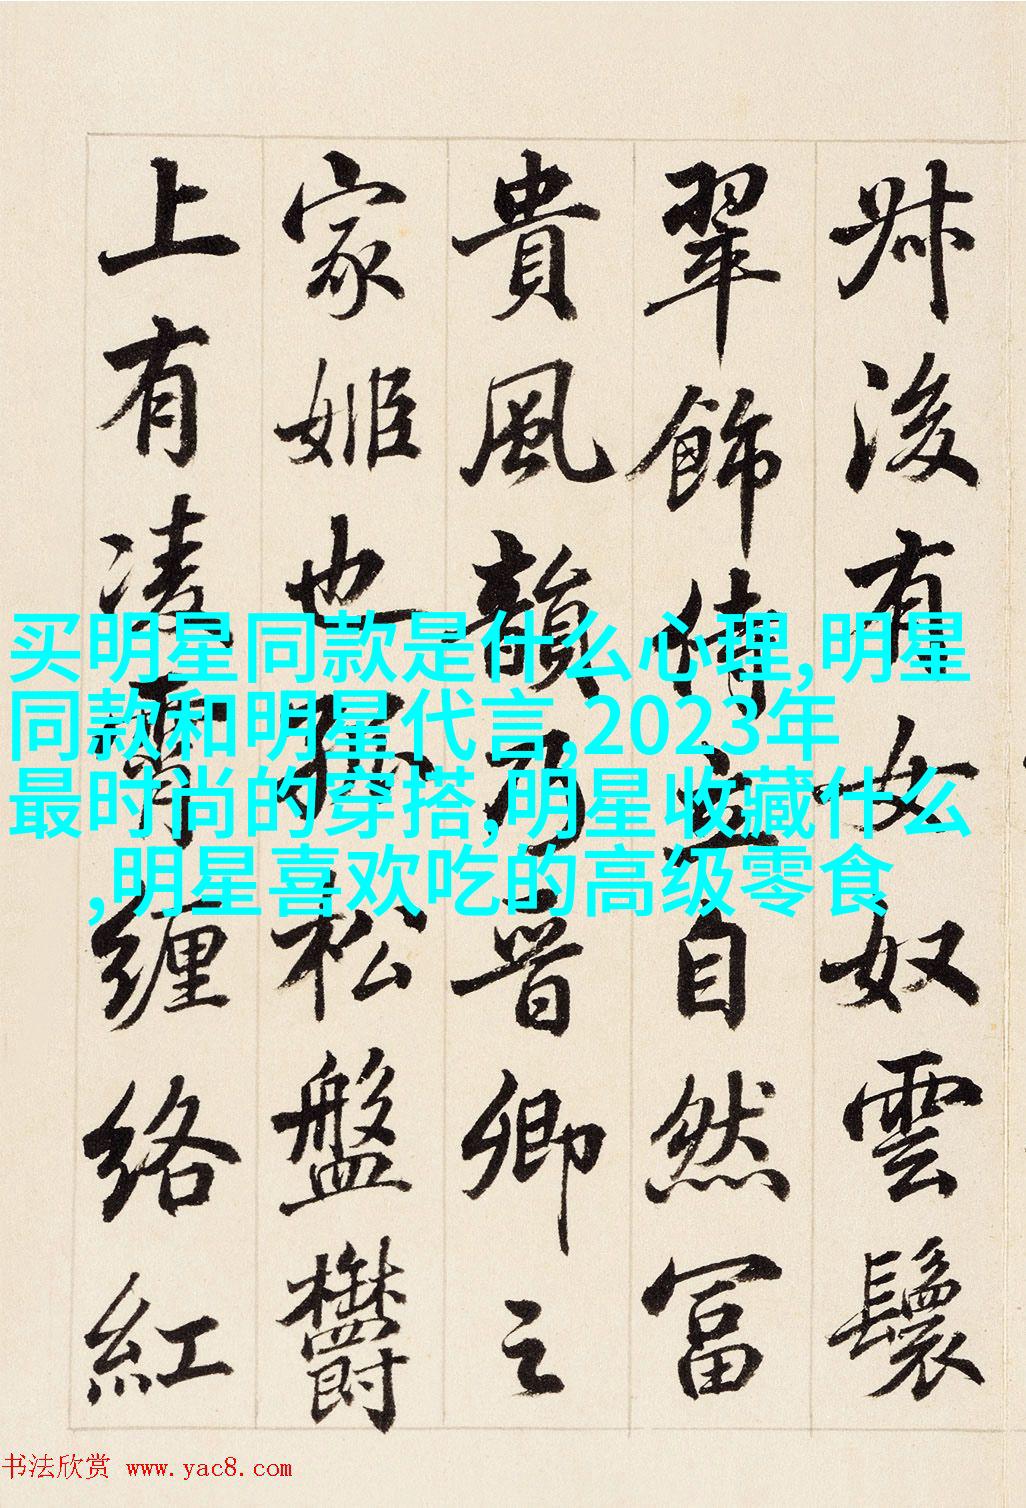 叔後有女奴雲鬟
翠飾侍立自然富
貴風韻乃晉卿之
家姬也孤松盤鬱
上有凌霄纏絡紅
买明星同款是什么心理,明星
同款和明星代言,2023年
最时尚的穿搭,明星收藏什么
,明星喜欢吃的高级零食
书法欣赏 www.yac8.com